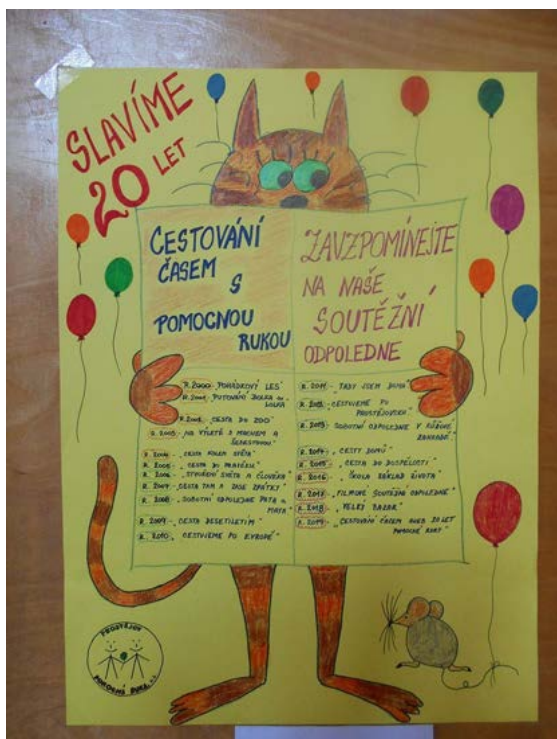 SLAVÍME
20 LET
CESTOVÁNÍ
ČASEM
S
POMOCNOU
RUKOU
ZAVZPOMÍNEJTE
NA NAŠE
SOUTĚŽNÍ
ODPOLEDNE
R. 2000 - „POHÁDKOVÝ LES"
R. 2001 - „PUTOVÁNÍ BOLKA A
LOLKA"
R. 2002 - „CESTA DO ZOO"
R. 2003 - „NA VÝLETĚ S MACHEM A
ŠEBESTOVOU"
R. 2004 - „CESTA KOLEM SVĚTA"
R. 2005 - „CESTA DO PRAVĚKU"
R. 2006 - „STVOŘENÍ SVĚTA A ČLOVĚKA"
R. 2007 - „CESTA TAM A ZASE ZPÁTKY"
R. 2008 - „SOBOTNÍ ODPOLEDNE PATA A
MATA"
R. 2009 - „CESTA DESETILETÍM"
R. 2010 - „CESTUJEME PO EVROPĚ"
R. 2011 - „TADY JSEM DOMA"
R. 2012 - „CESTUJEME PO
PROSTĚJOVSKU"
R. 2013 - „SOBOTNÍ ODPOLEDNE V
ZAHRADĚ"
R. 2014 - „CESTY DOMŮ"
R. 2015 - „CESTA DO DOSPĚLOSTI"
R. 2016 - „ŠKOLA ZÁKLAD ŽIVOTA"
R. 2017 - „FILMOVÉ SOUTĚŽNÍ ODPOLEDNE"
R. 2018 - „VELKÝ BAZAR"
R. 2019 - „CESTOVÁNÍ ČASEM ANEB 20 LET
POMOCNÉ RUKY"
PROSTĚJOV
POMOCNÁ RUKA, z.s.